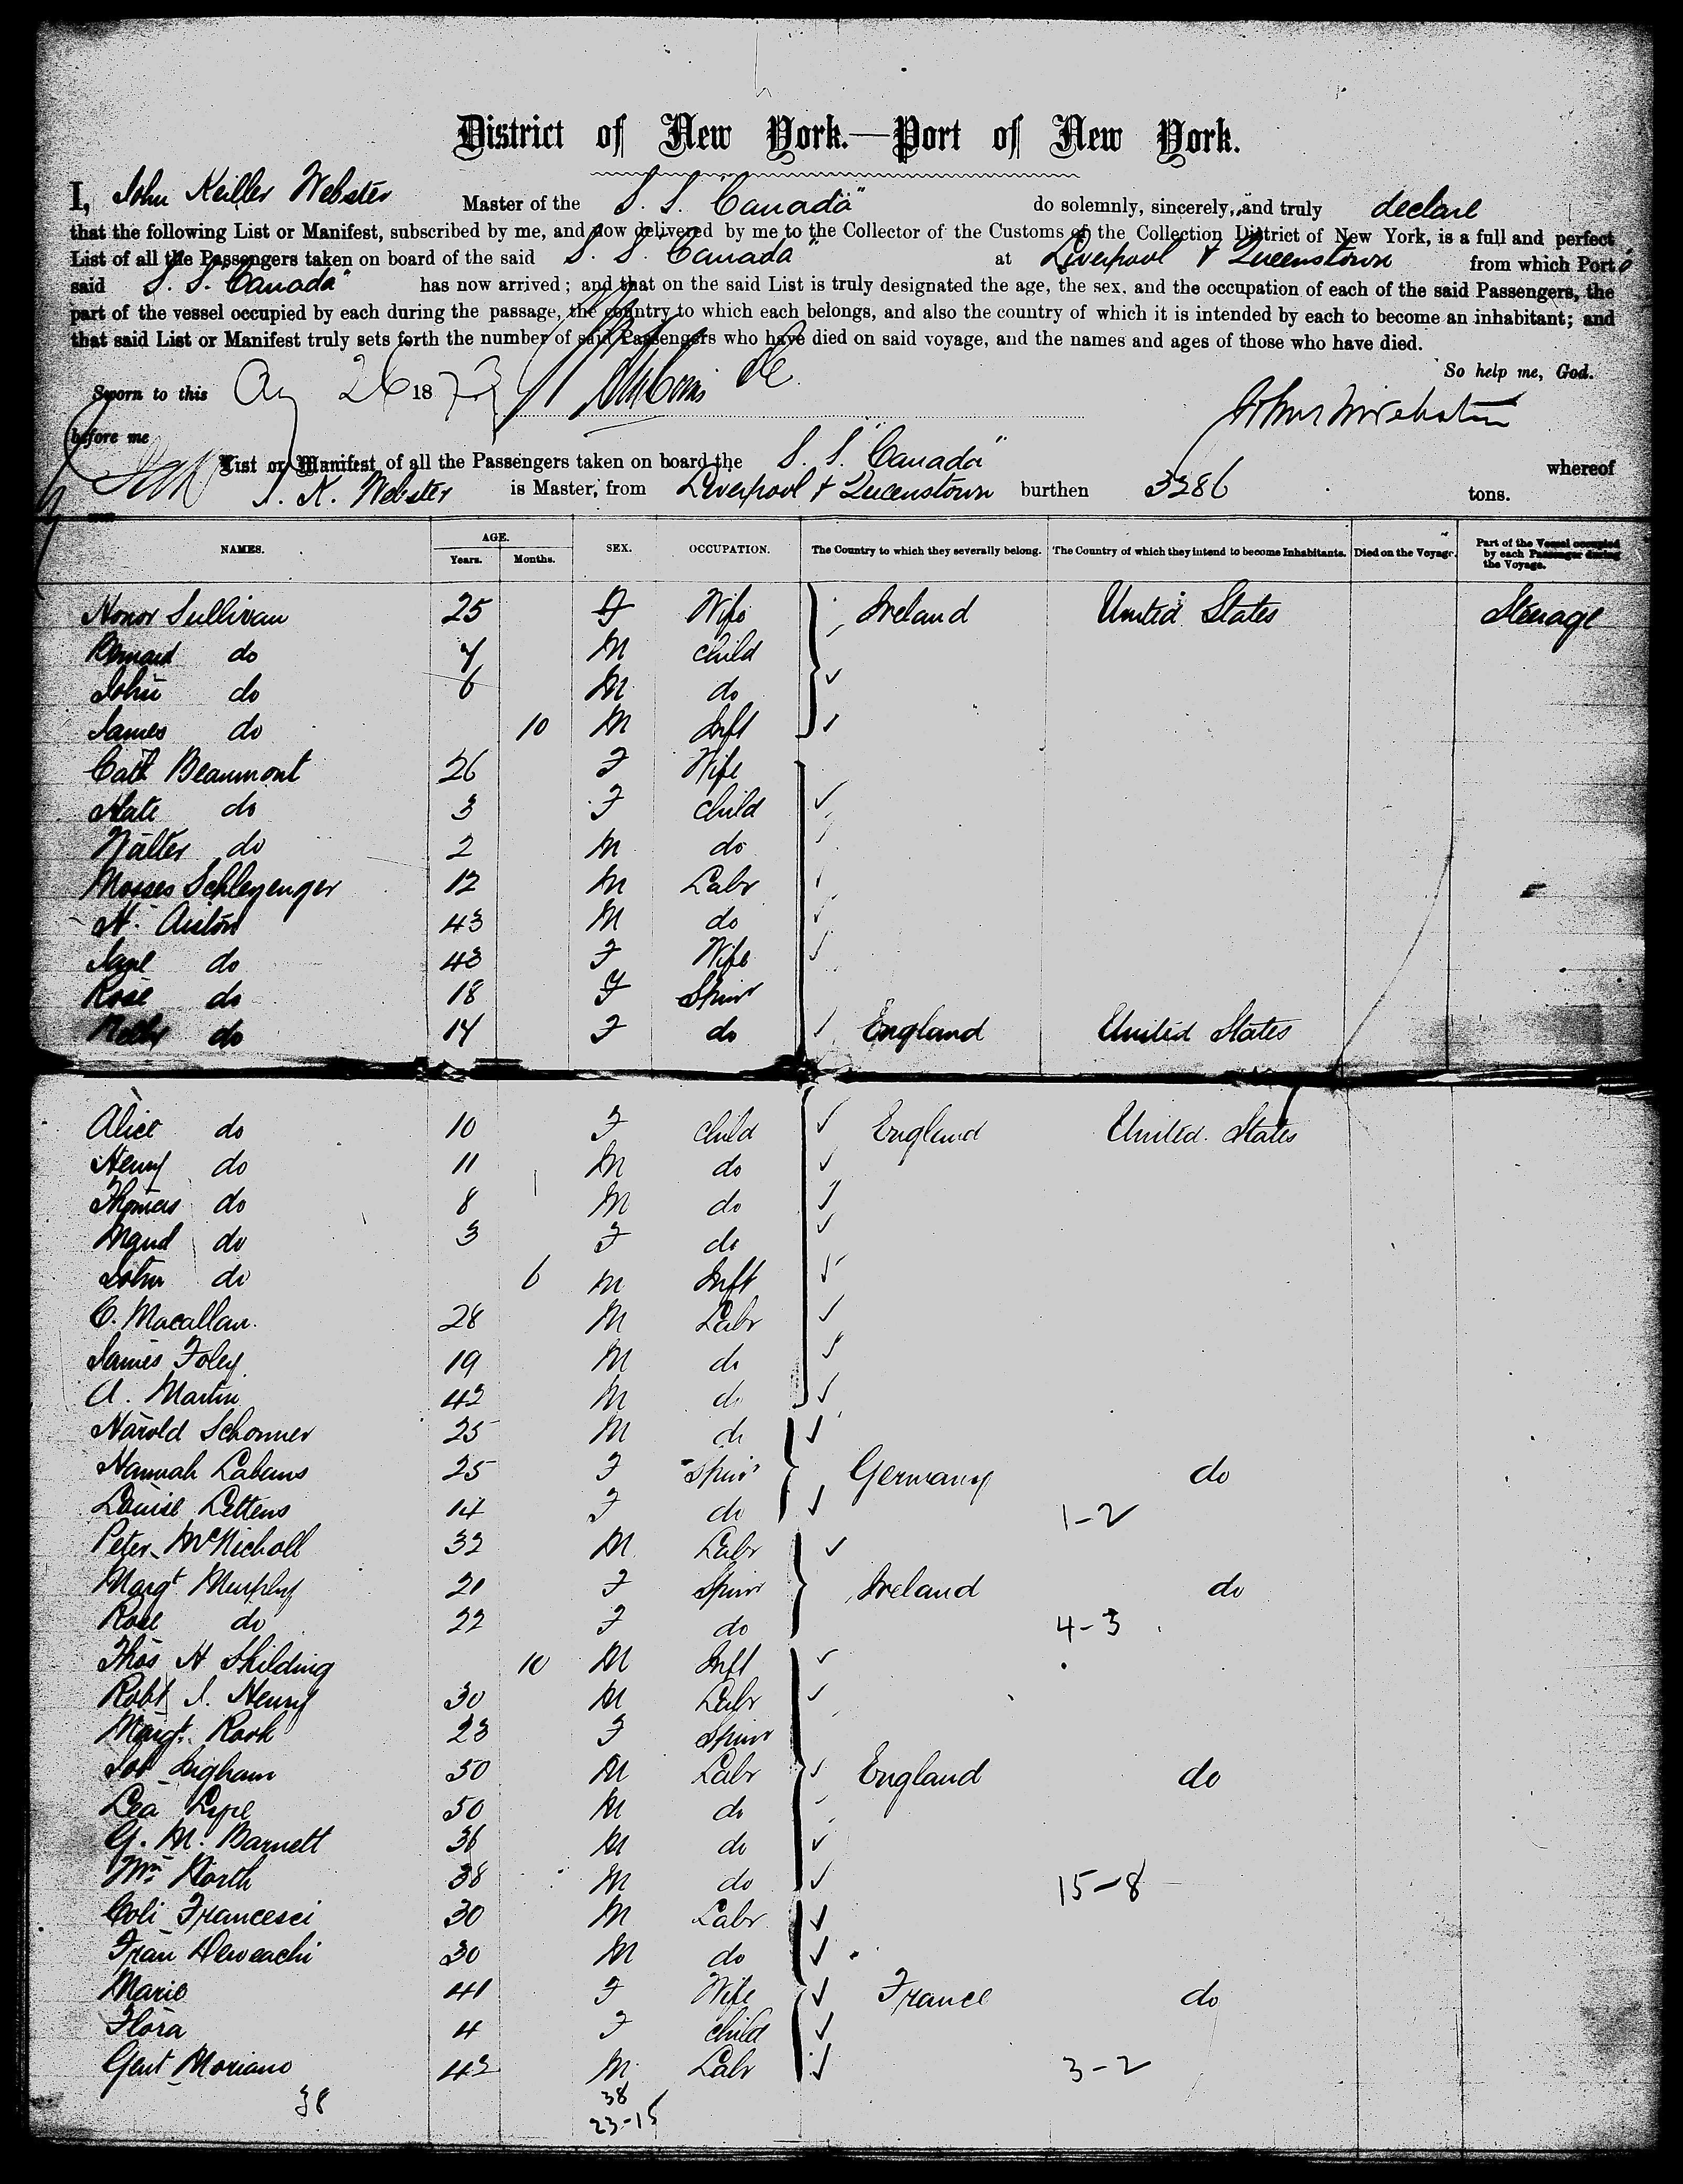 District of New York.—Port of New York.
I, John Keiller Webster Master of the S. S. "Canada" do solemnly, sincerely, and truly declare
that the following List or Manifest, subscribed by me, and now delivered by me to the Collector of the Customs of the Collection District of New York, is a full and perfect
List of all the Passengers taken on board of the said S. S. "Canada" at Liverpool & Queenstown from which Port
said S. S. "Canada" has now arrived; and that on the said List is truly designated the age, the sex, and the occupation of each of the said Passengers, the
part of the vessel occupied by each during the passage, the country to which each belongs, and also the country of which it is intended by each to become an inhabitant; and
that said List or Manifest truly sets forth the number of said Passengers who have died on said voyage, and the names and ages of those who have died.
So help me, God.
Sworn to this Aug 26 1873
before me
List or Manifest of all the Passengers taken on board the S. S. "Canada" whereof
J. K. Webster is Master, from Liverpool & Queenstown burthen 3286 tons.
NAMES. AGE. Years. Months. SEX. OCCUPATION. The Country to which they severally belong. The Country of which they intend to become Inhabitants. Died on the Voyage. Part of the Vessel occupied by each Passenger during the Voyage.
Honor Sullivan 25 F Wife Ireland United States Steerage
Bernard do 7 M child
John do 6 M do
James do 10 M Inft
Cath Beaumont 26 F Wife
Kate do 3 F child
Walter do 2 M do
Moses Schlegenger 12 M Labr
H. Aiston 43 M do
Jane do 43 F Wife
Rose do 18 F Spinr
do 14 F do England United States
Alice do 10 F child England United States
Henry do 11 M do
Thomas do 8 M do
Maud do 3 F do
John do 6 M Inft
C. Macallan 28 M Labr
James Foley 19 M do
A. Martin 42 M do
Harold Schonner 25 M do
Hannah Labans 25 F Spinr Germany do
Louise Lettens 14 F do 1-2
Peter McNicholl 32 M Labr
Margt Murphy 21 F Spinr Ireland do
Rose do 22 F do 4-3
Thos H Skilding 10 M Inft
Robt J. Henry 30 M Labr
Margt. Rook 23 F Spinr
Job Ingham 50 M Labr England do
Lea Lype 50 M do
G. M. Barnett 36 M do
Wm North 38 M do 15-8
Coli Francesci 30 M Labr
Fran 30 M do
Marie 41 F Wife France do
Flora 4 F child
Gent Moriano 42 M Labr 3-2
38 38
23-15